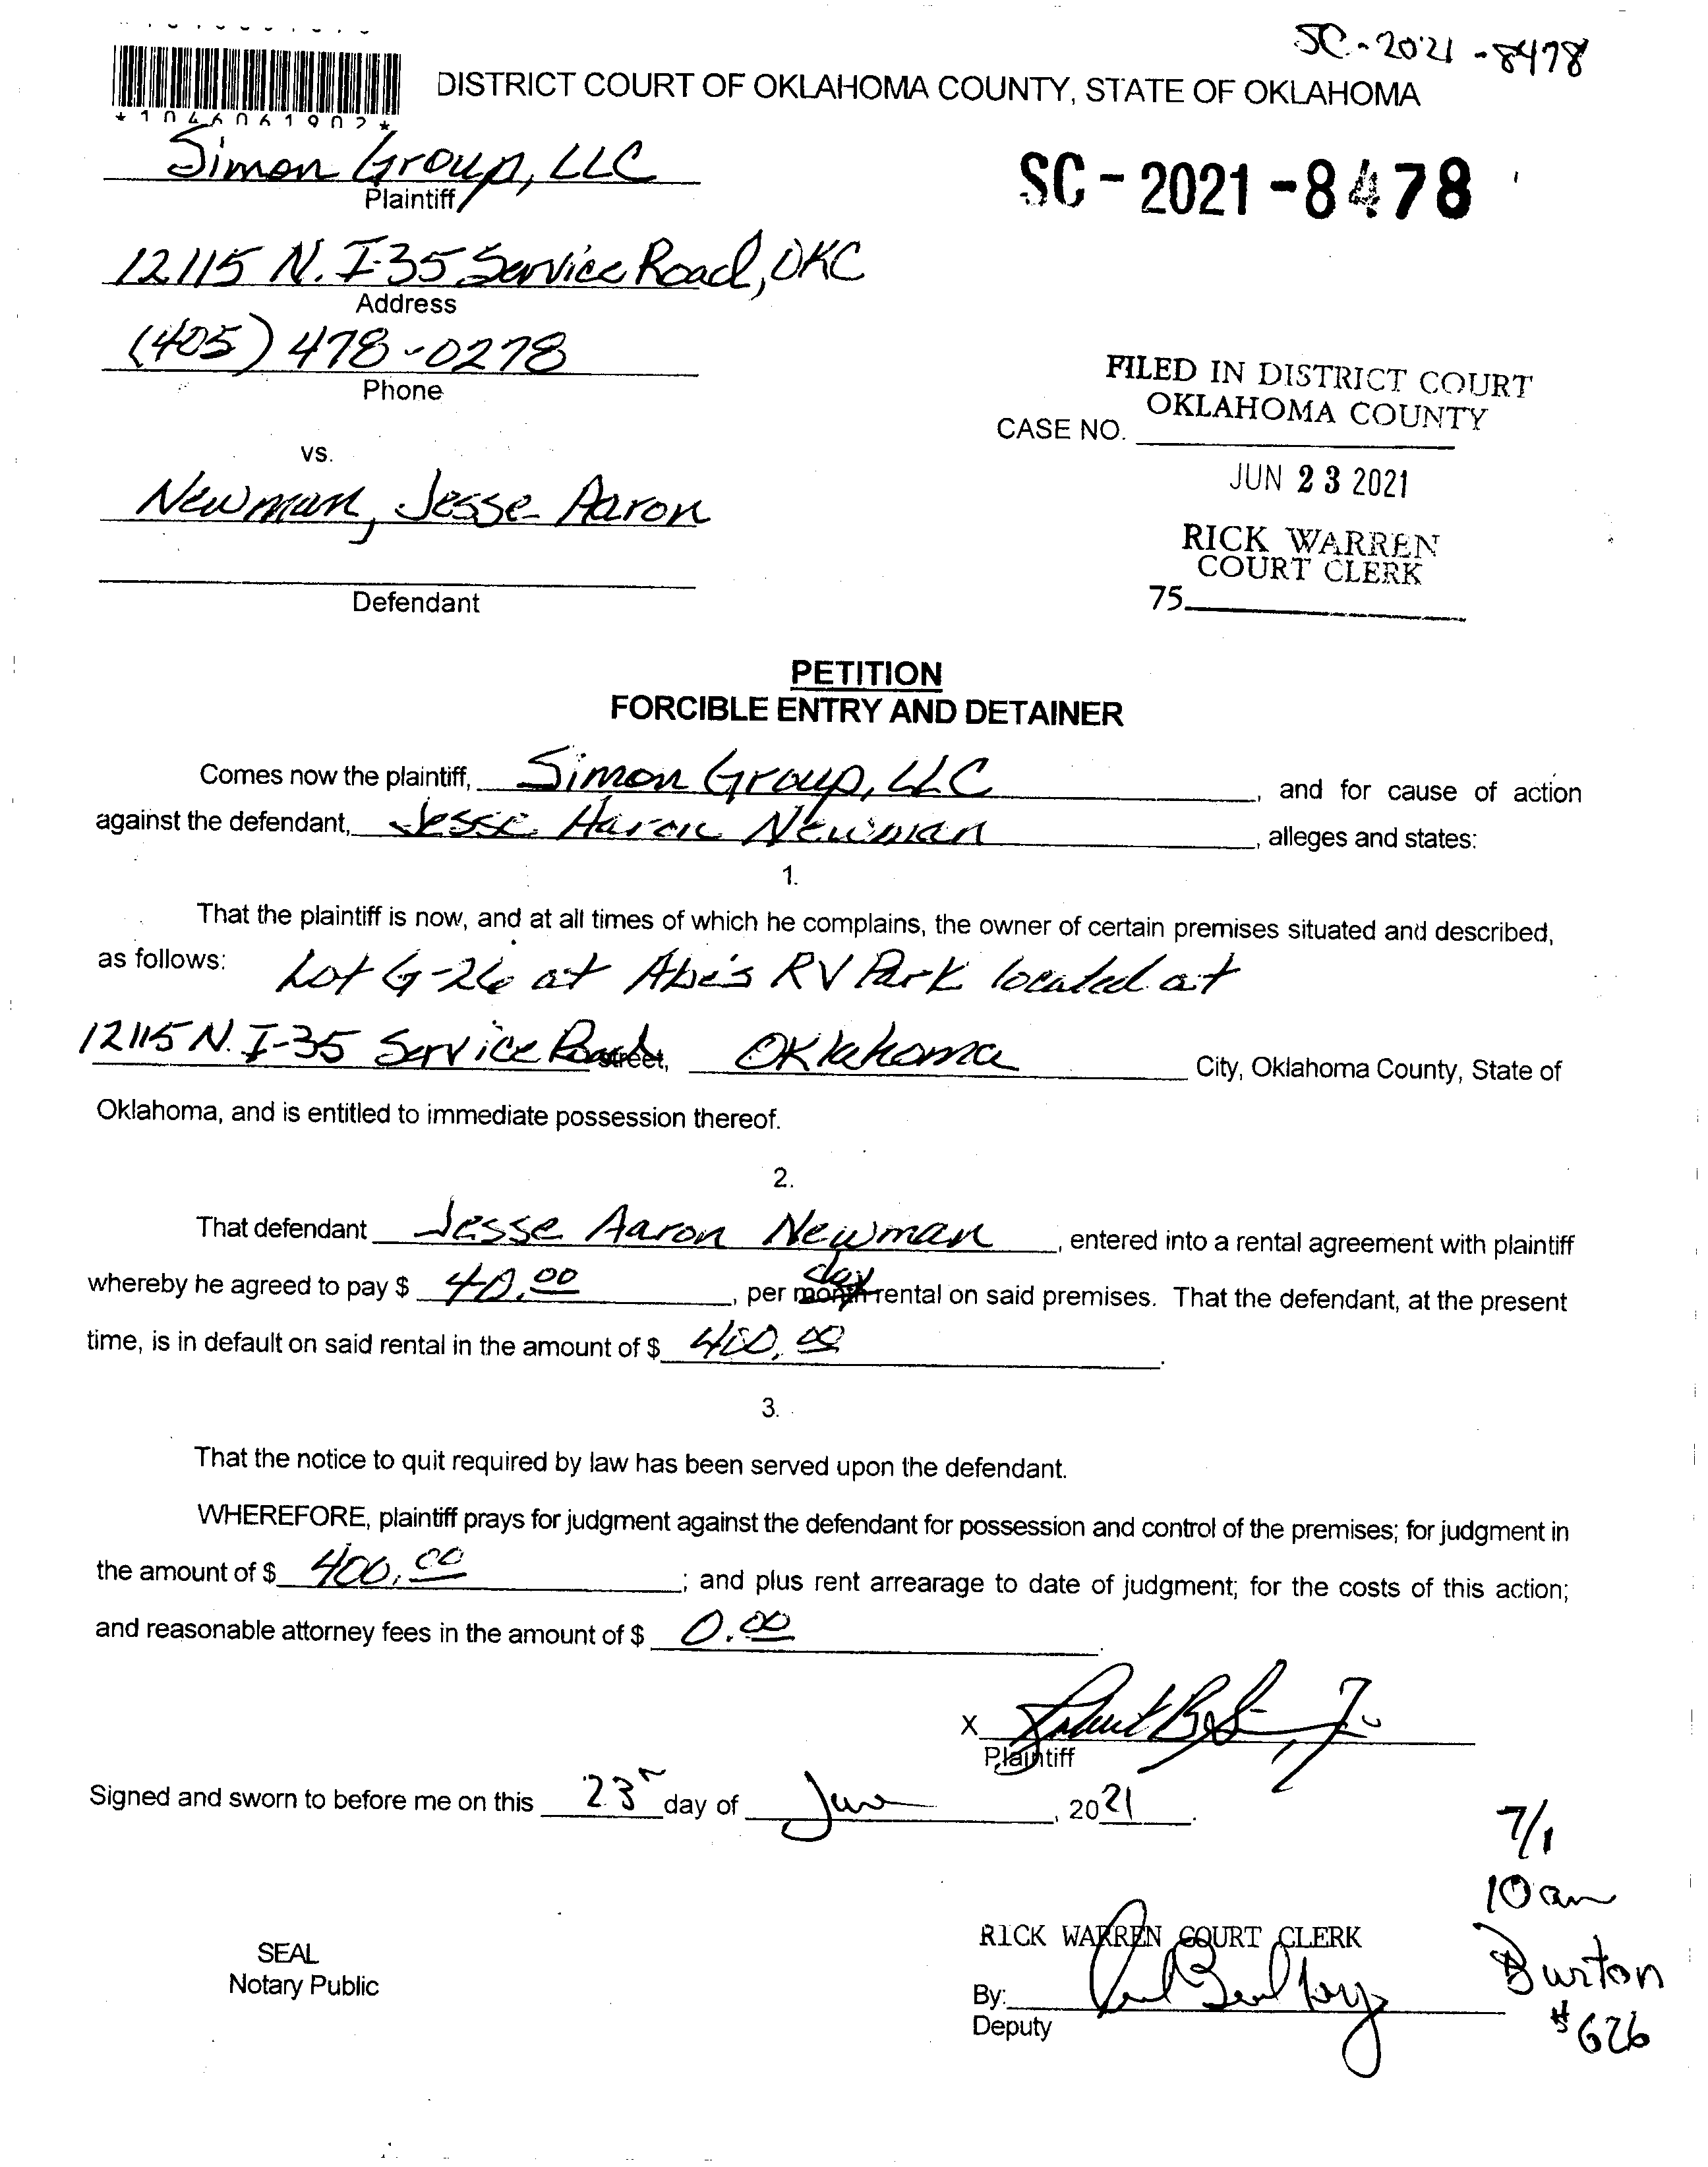 SC-2021-8478
*1046061902*
DISTRICT COURT OF OKLAHOMA COUNTY, STATE OF OKLAHOMA
Simon Group, LLC
Plaintiff
SC-2021-8478
12115 N. I-35 Service Road, OKC
Address
(405) 478-0278
Phone
FILED IN DISTRICT COURT
OKLAHOMA COUNTY
CASE NO.
vs.
JUN 23 2021
Newman, Jesse Aaron
RICK WARREN
COURT CLERK
75
Defendant
PETITION
FORCIBLE ENTRY AND DETAINER
Comes now the plaintiff, Simon Group, LLC, and for cause of action
against the defendant, Jesse Aaron Newman, alleges and states:
1.
That the plaintiff is now, and at all times of which he complains, the owner of certain premises situated and described,
as follows: Lot G-26 at Abe's RV Park located at
12115 N. I-35 Service Road street, Oklahoma City, Oklahoma County, State of
Oklahoma, and is entitled to immediate possession thereof.
2.
That defendant Jesse Aaron Newman, entered into a rental agreement with plaintiff
whereby he agreed to pay $ 40.00, per month day rental on said premises. That the defendant, at the present
time, is in default on said rental in the amount of $ 400.00.
3.
That the notice to quit required by law has been served upon the defendant.
WHEREFORE, plaintiff prays for judgment against the defendant for possession and control of the premises; for judgment in
the amount of $ 400.00; and plus rent arrearage to date of judgment; for the costs of this action;
and reasonable attorney fees in the amount of $ 0.00.
X
Plaintiff
Signed and sworn to before me on this 23 day of June, 2021.
7/1
10am
Burton
#626
SEAL
Notary Public
RICK WARREN COURT CLERK
By:
Deputy